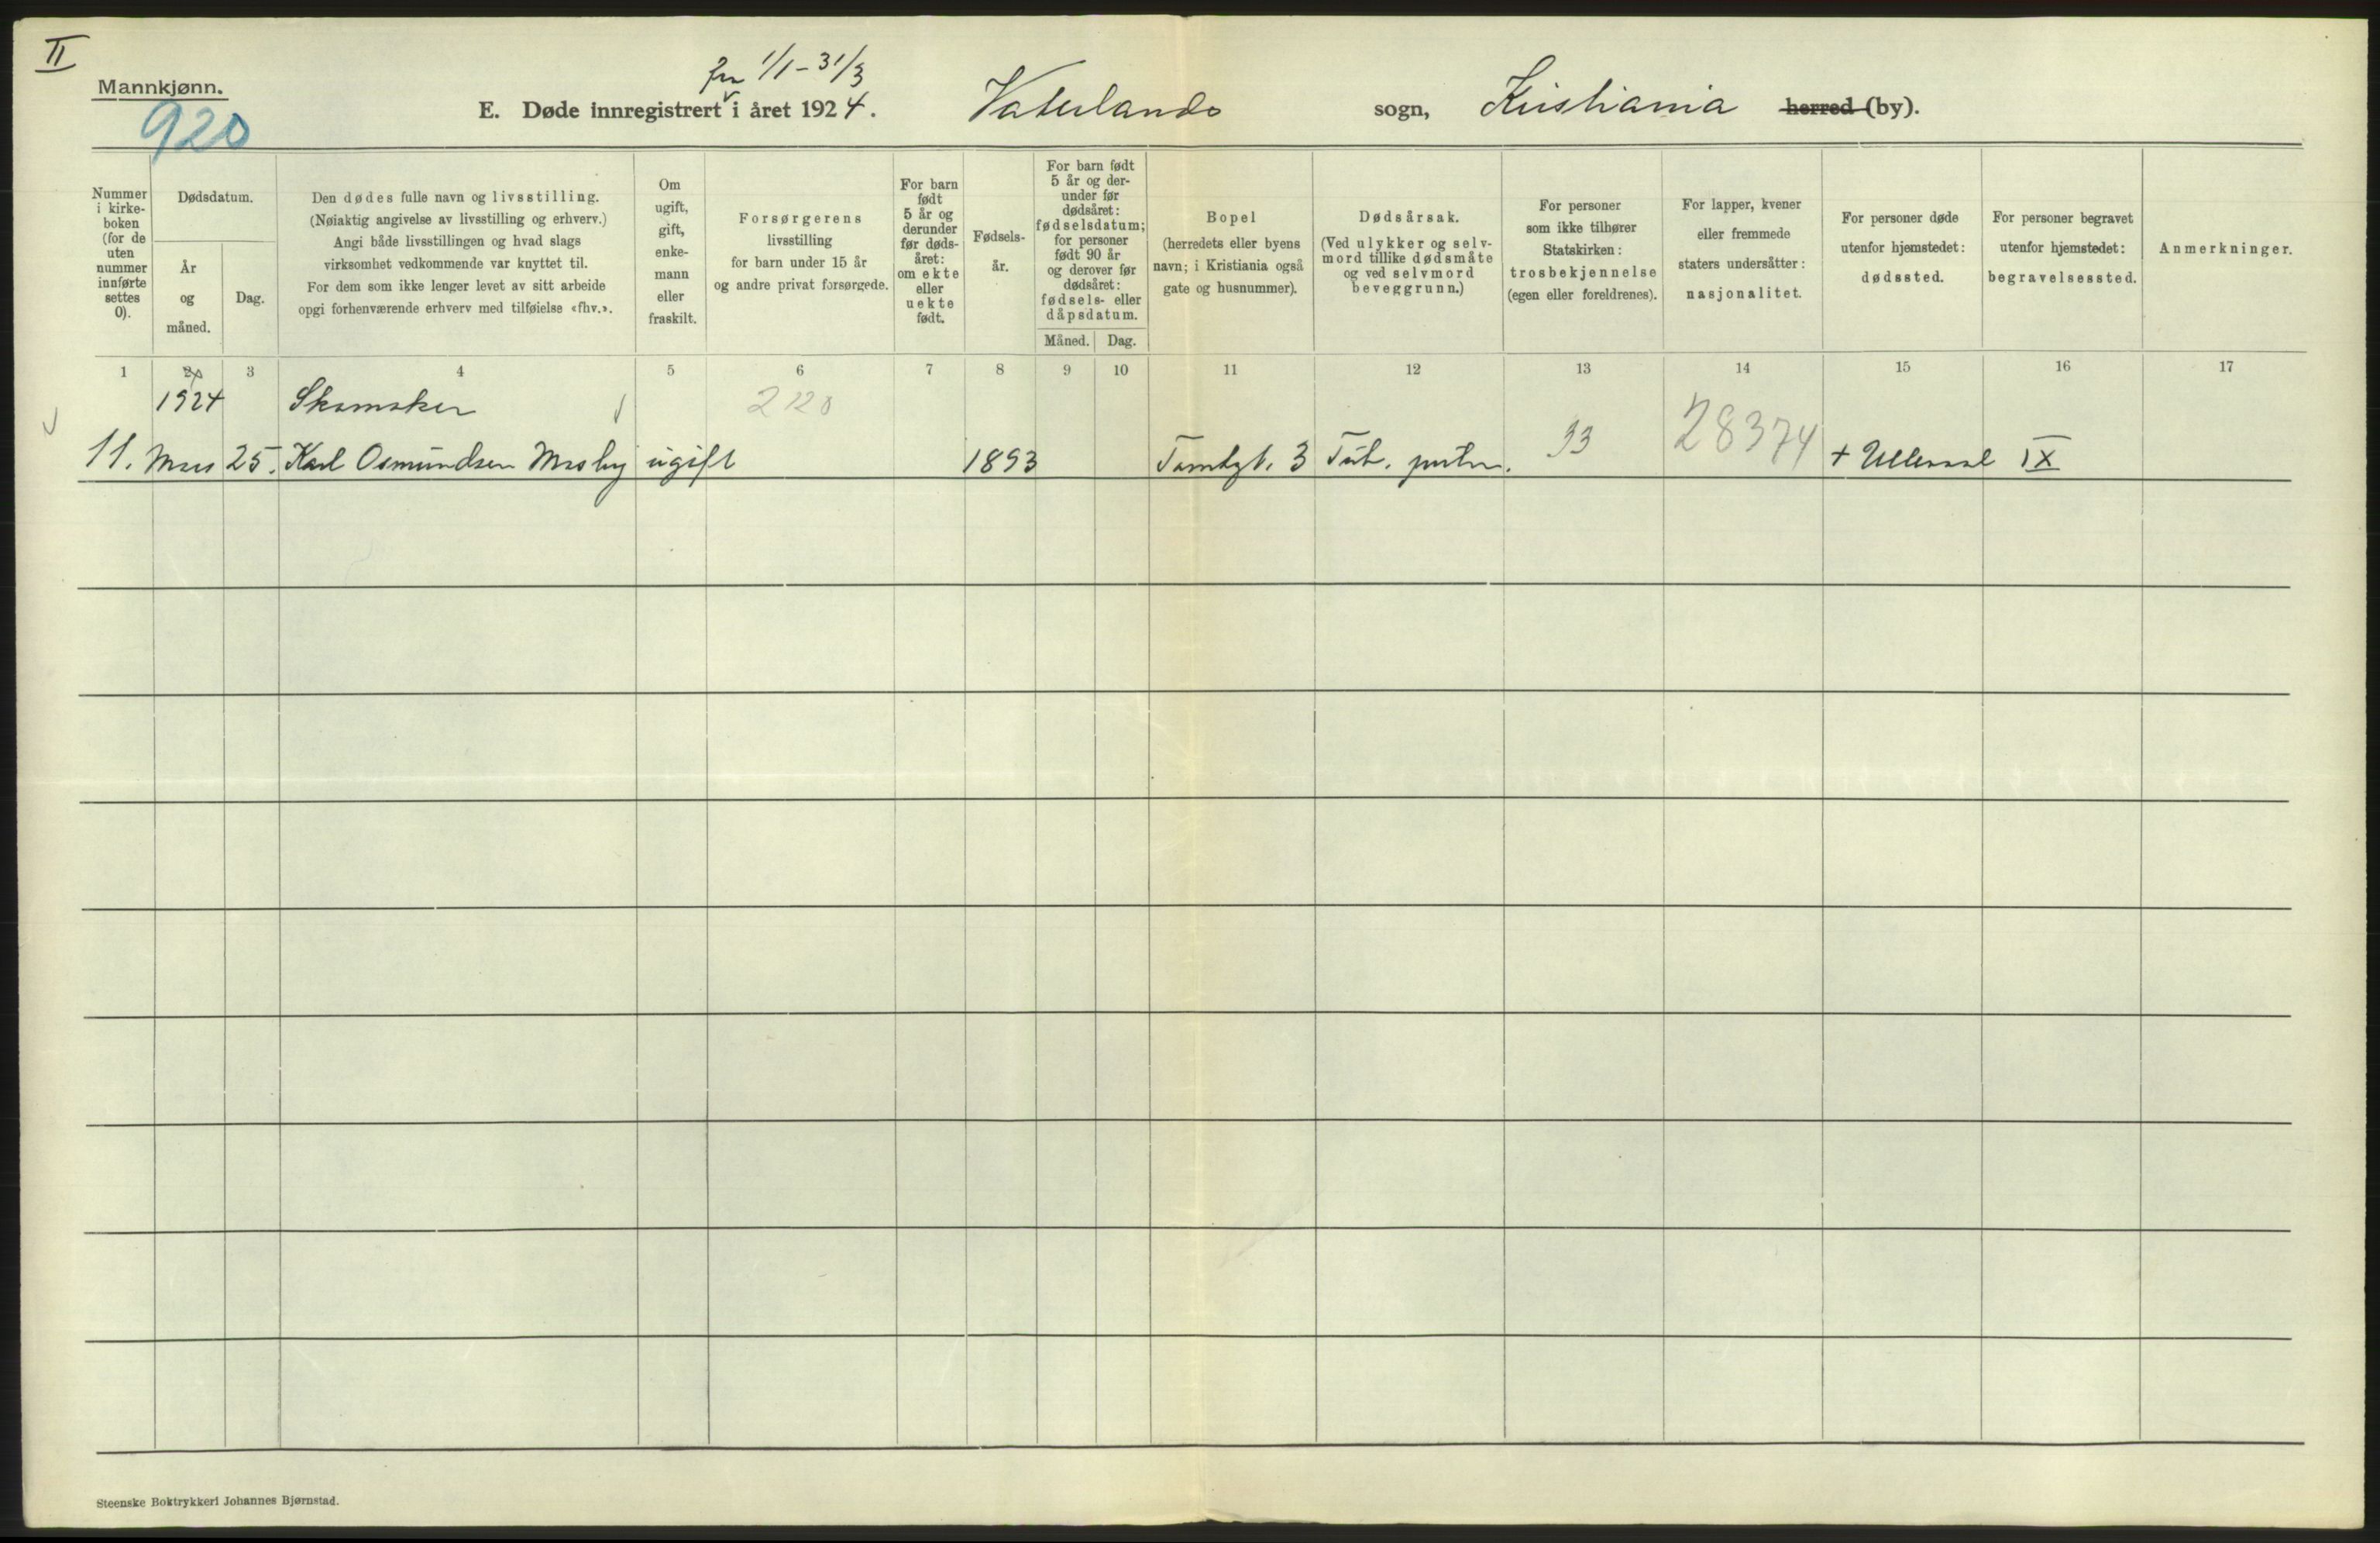 II
Mannkjønn.
920
fra 1/1 - 31/3
E. Døde innregistrert i året 1924. Vaterlands sogn, Kristiania herred (by).
Nummer i kirke-boken (for de uten nummer innførte settes 0).
Dødsdatum.
År og måned.
Dag.
Den dødes fulle navn og livsstilling.
(Nøiaktig angivelse av livsstilling og erhverv.)
Angi både livsstillingen og hvad slags
virksomhet vedkommende var knyttet til.
For dem som ikke lenger levet av sitt arbeide
opgi forhenværende erhverv med tilføielse «fhv.».
Om ugift, gift, enke-mann eller fraskilt.
Forsørgerens
livsstilling
for barn under 15 år
og andre privat forsørgede.
For barn født 5 år og derunder før døds-året: om ekte eller uekte født.
Fødsels-år.
For barn født 5 år og der-under før dødsåret: fødselsdatum; for personer født 90 år og derover før dødsåret: fødsels- eller dåpsdatum.
Måned. Dag.
Bopel
(herredets eller byens
navn; i Kristiania også
gate og husnummer).
Dødsårsak.
(Ved ulykker og selv-
mord tillike dødsmåte
og ved selvmord
beveggrunn.)
For personer
som ikke tilhører
Statskirken:
trosbekjennelse
(egen eller foreldrenes).
For lapper, kvener
eller fremmede
staters undersåtter:
nasjonalitet.
For personer døde
utenfor hjemstedet:
dødssted.
For personer begravet
utenfor hjemstedet:
begravelsessted.
Anmerkninger.
1 2 3 4 5 6 7 8 9 10 11 12 13 14 15 16 17
1924 Skomaker 2120
11. Mars 25. Karl Osmundsen Mosby ugift 1893 Tomtegt. 3 Tub. pulm. 33 28374 + Ullevaal IX
Steenske Boktrykkeri Johannes Bjørnstad.